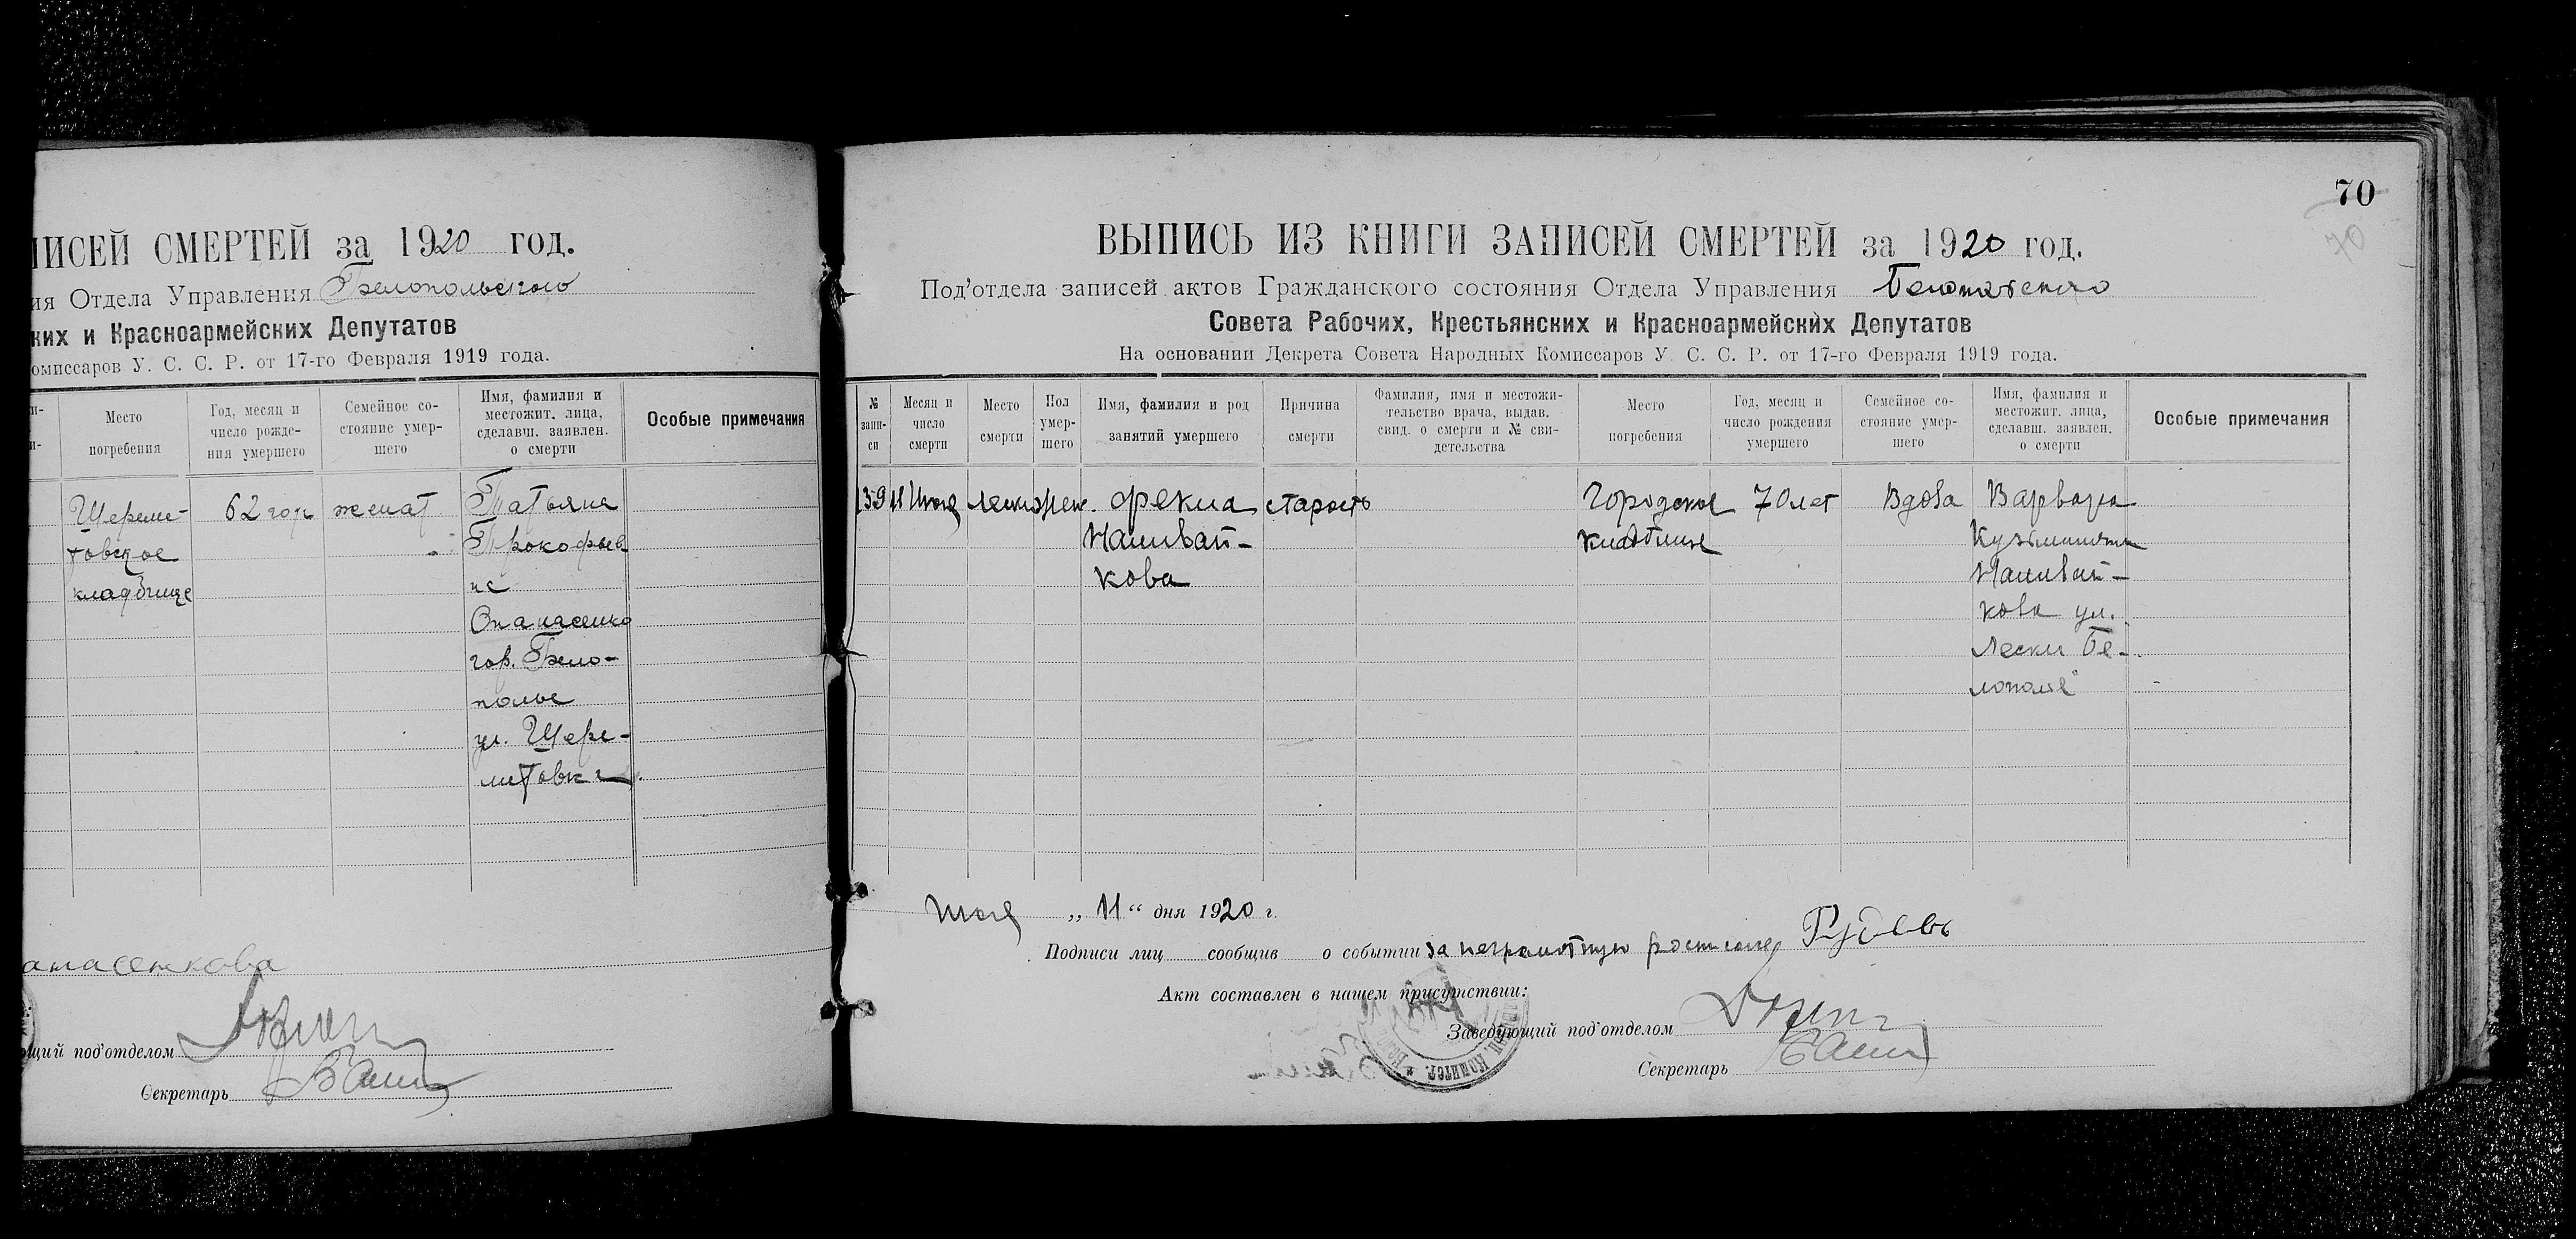 ПИСЕЙ СМЕРТЕЙ за 1920 год.
ия Отдела Управления Белопольского
ких и Красноармейских Депутатов
омиссаров У. С. С. Р. от 17-го Февраля 1919 года.
и-
и-
Место
погребения
Год, месяц и
число рожде-
ния умершего
Семейное со-
стояние умер-
шего
Имя, фамилия и
местожит. лица,
сделавш. заявлен.
о смерти
Особые примечания
Шереме-
товское
кладбище
62 годa
женат
Татьяна
Прокофьев
на
Опанасенко
гор. Бело-
полье
ул. Шере-
метовка
анасенкова
ющий под'отделом
Секретарь
70
70
ВЫПИСЬ ИЗ КНИГИ ЗАПИСЕЙ СМЕРТЕЙ за 1920 год.
Под'отдела записей актов Гражданского состояния Отдела Управления Белопольского
Совета Рабочих, Крестьянских и Красноармейских Депутатов
На основании Декрета Совета Народных Комиссаров У. С. С. Р. от 17-го Февраля 1919 года.
№
запи-
си
Месяц и
число
смерти
Место
смерти
Пол
умер-
шего
Имя, фамилия и род
занятий умершего
Причина
смерти
Фамилия, имя и местожи-
тельство врача, выдав.
свид. о смерти и № сви-
детельства
Место
погребения
Год, месяц и
число рождения
умершего
Семейное со-
стояние умер-
шего
Имя, фамилия и
местожит. лица,
сделавш. заявлен.
о смерти
Особые примечания
139
11 Июля
Лески
жен.
Фекла
Наливай-
кова
старость
Городское
кладбище
70 лет
Вдова
Варвара
Кузьминична
Наливай-
кова ул.
Лески Бе-
лополье
Июля „11“ дня 1920 г.
Подписи лиц сообщив о событии за неграмотную росписался Рудевъ
Акт составлен в нашем присутствии:
Заведующий под'отделом
Секретарь